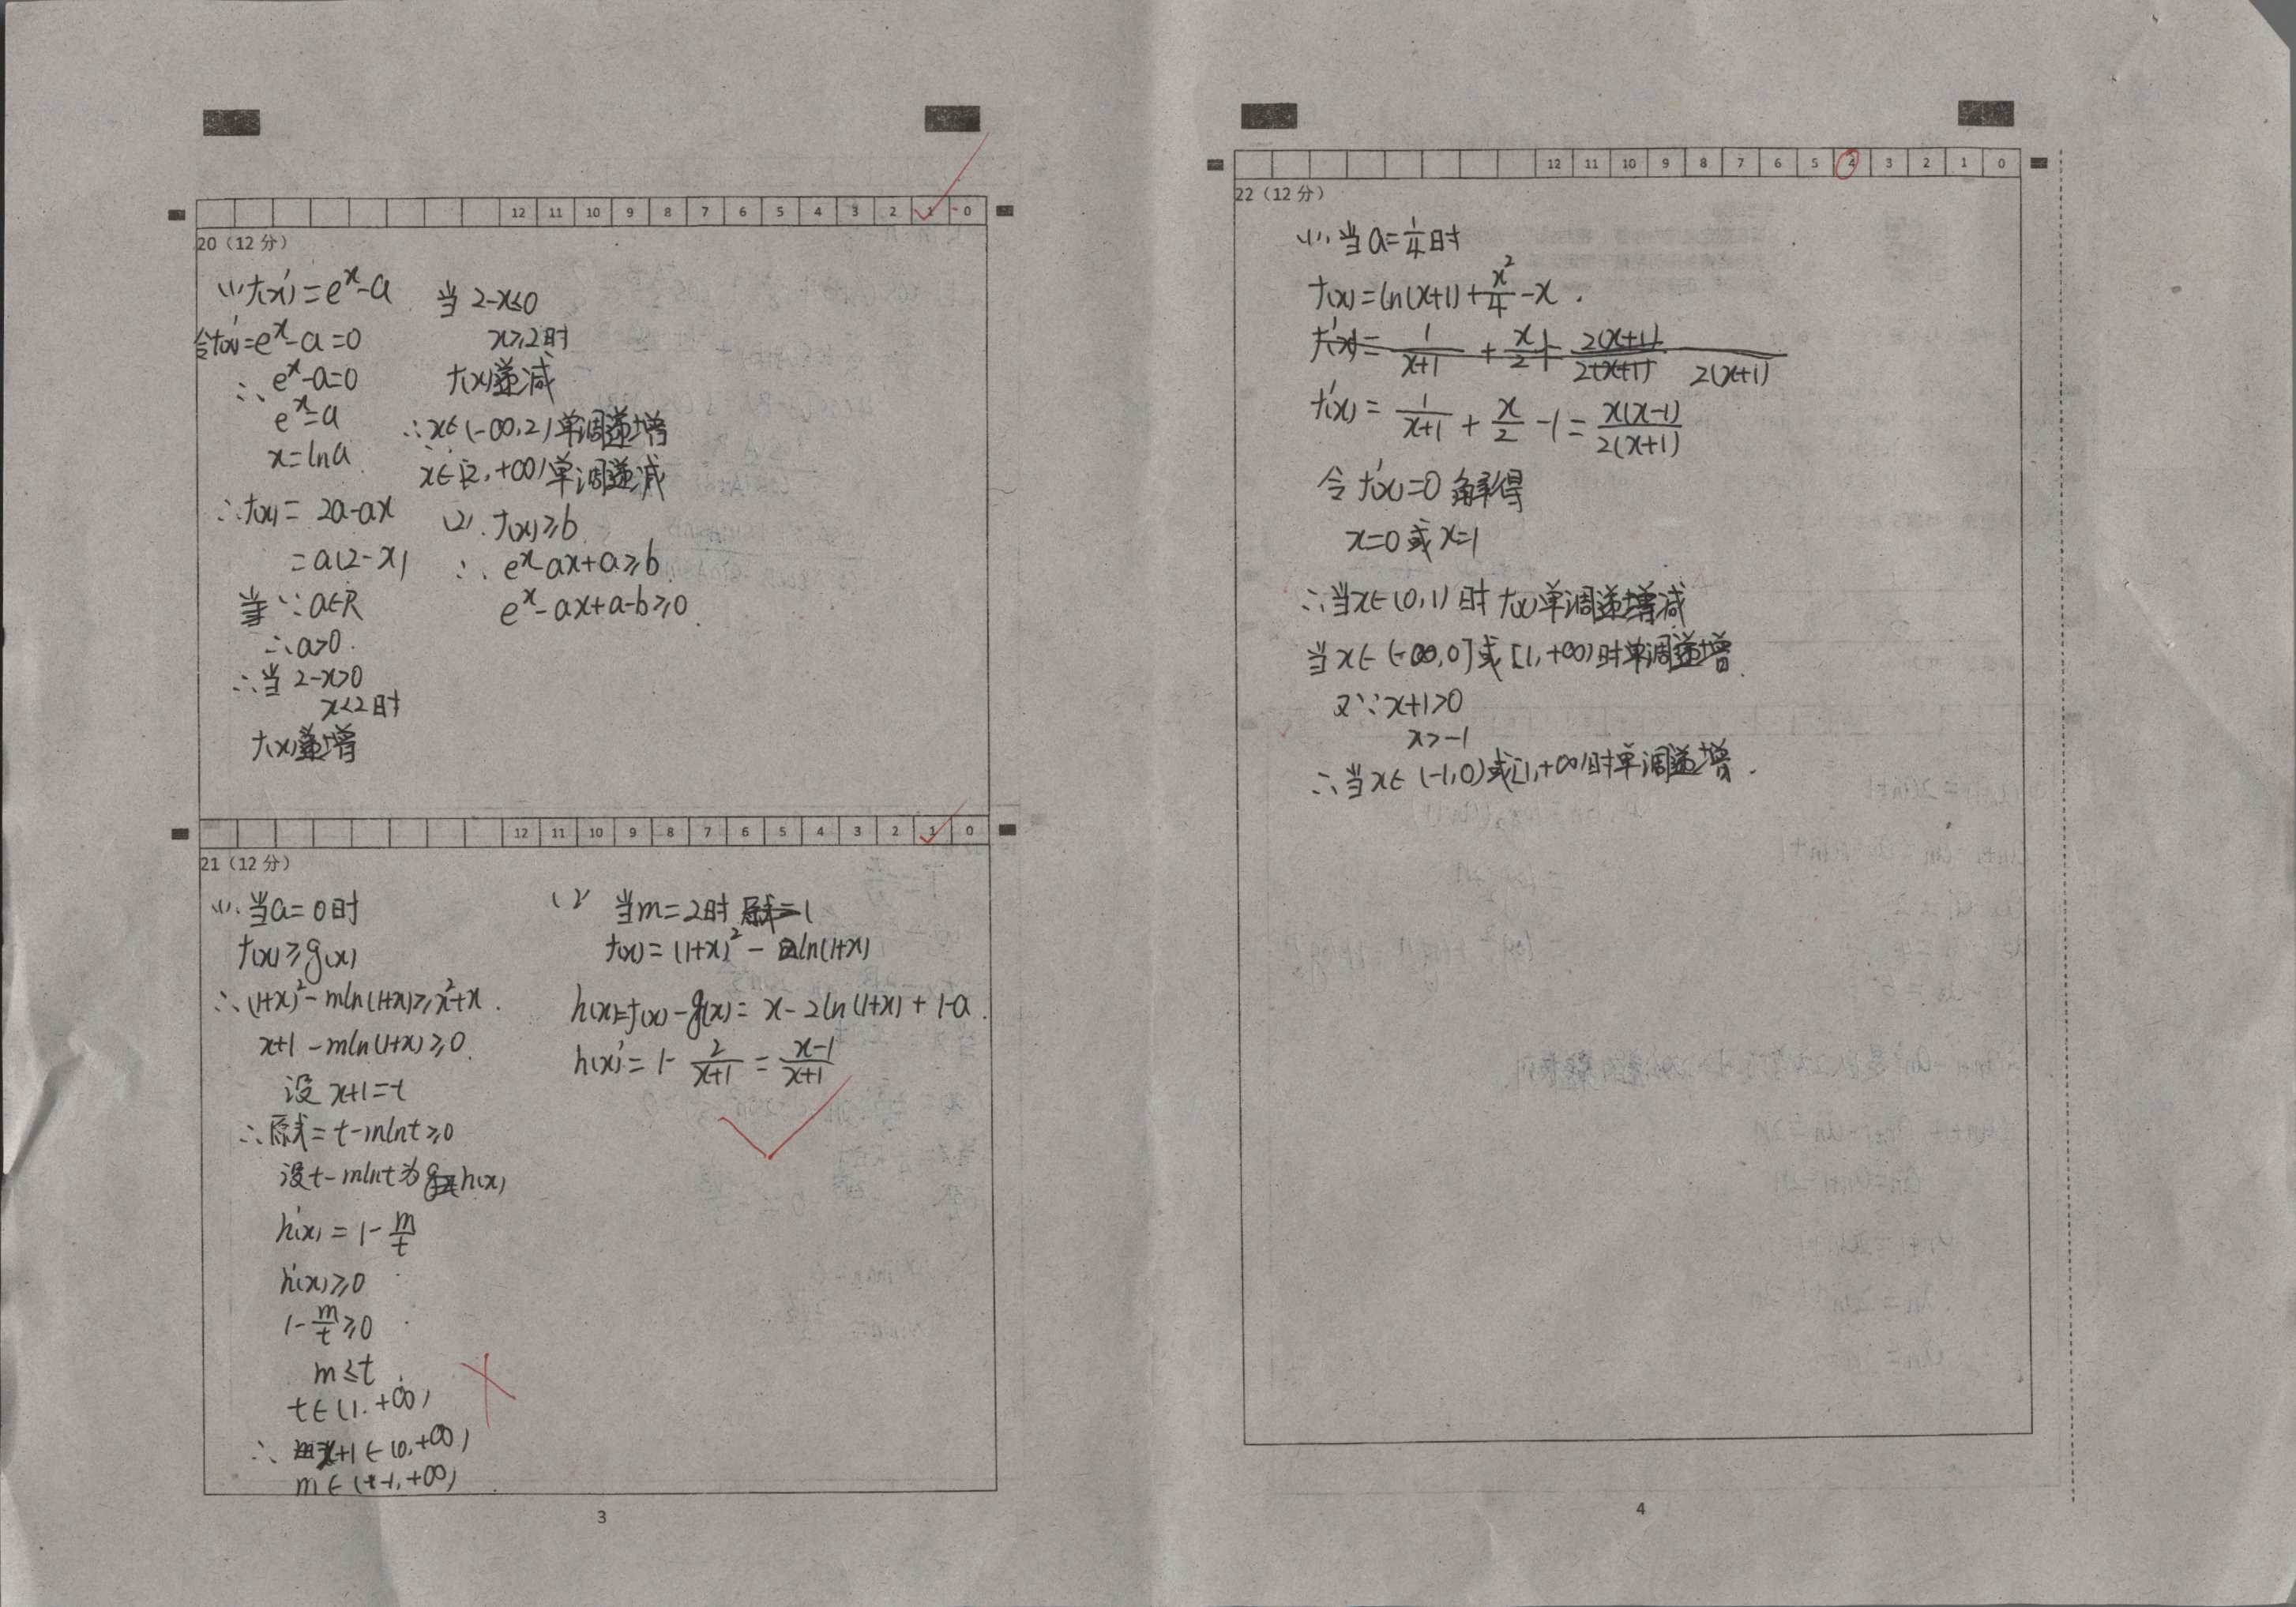 12 11 10 9 8 7 6 5 4 3 2 1 0
20（12 分）
(1) f'(x)=e^x-a
令f'(x)=e^x-a=0
∴e^x-a=0
e^x=a
x=lna
∴f(x)=2a-ax
=a(2-x)
∵a∈R
∴a>0.
∴当 2-x>0
x<2时
f(x)递增
当 2-x≤0
x≥2时
f(x)递减
∴x∈(-∞,2)单调递增
x∈[2,+∞)单调递减
(2). f(x)≥b
∴e^x-ax+a≥b
e^x-ax+a-b≥0.
12 11 10 9 8 7 6 5 4 3 2 1 0
21（12 分）
(1).当a=0时
f(x)≥g(x)
∴(1+x)^2-mln(1+x)≥x^2+x.
x+1-mln(1+x)≥0.
设 x+1=t
∴原式=t-mlnt≥0
设t-mlnt为h(x)
h'(x)=1-m/t
h'(x)≥0
1-m/t≥0
m≤t
t∈(1.+∞)
∴x+1∈(0,+∞)
m∈(-1,+∞)
(2) 当m=2时
f(x)=(1+x)^2-2ln(1+x)
h(x)=f(x)-g(x)=x-2ln(1+x)+1-a.
h(x)'=1-2/(x+1)=(x-1)/(x+1)
3
12 11 10 9 8 7 6 5 4 3 2 1 0
22（12 分）
(1).当a=1/4时
f(x)=ln(x+1)+x^2/4-x.
f'(x)=1/(x+1)+x/2-1=x(x-1)/2(x+1)
令f'(x)=0 解得
x=0或x=1
∴当x∈(0,1)时f(x)单调递减
当x∈(-∞,0]或[1,+∞)时单调递增.
又∵x+1>0
x>-1
∴当x∈(-1,0)或[1,+∞)时单调递增.
4